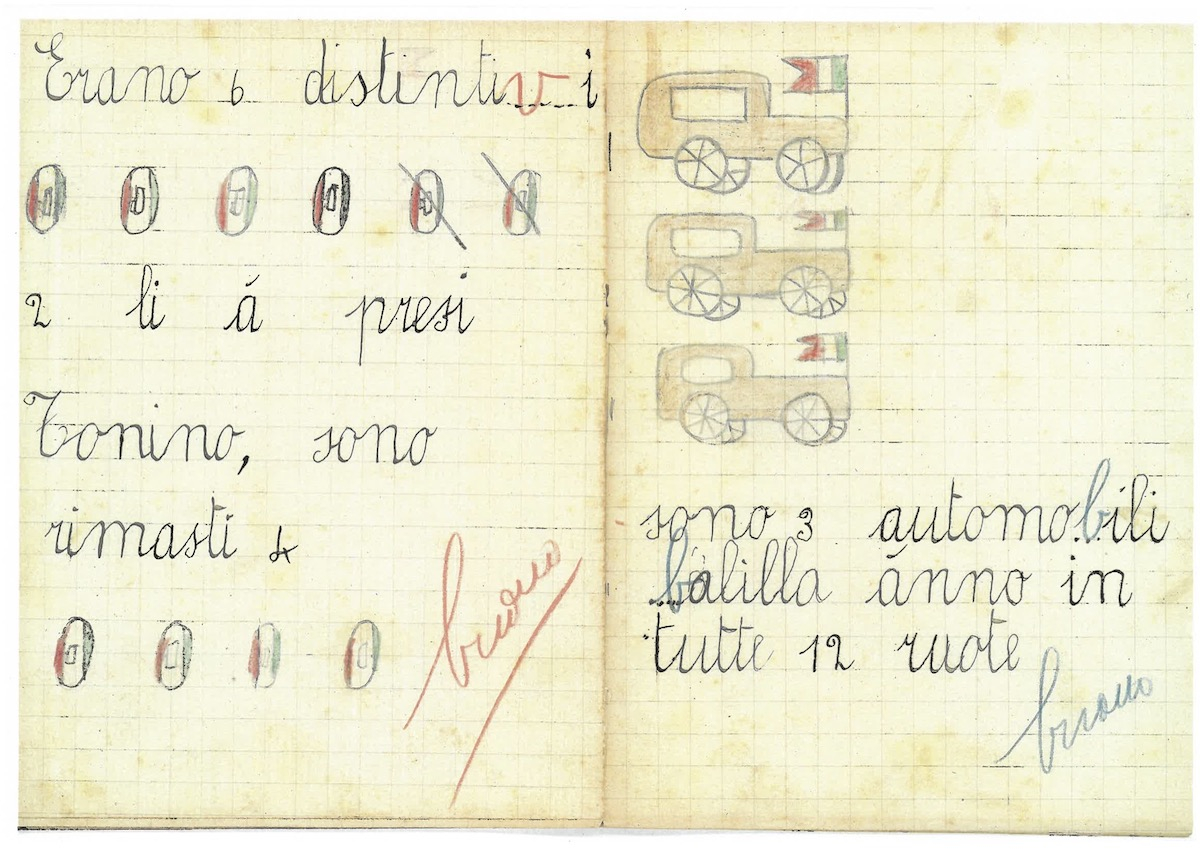 Erano 6 distintivi
2 li á presi
Tonino, sono
rimasti 4
buono
sono 3 automobili
balilla ánno in
tutte 12 ruote
buono